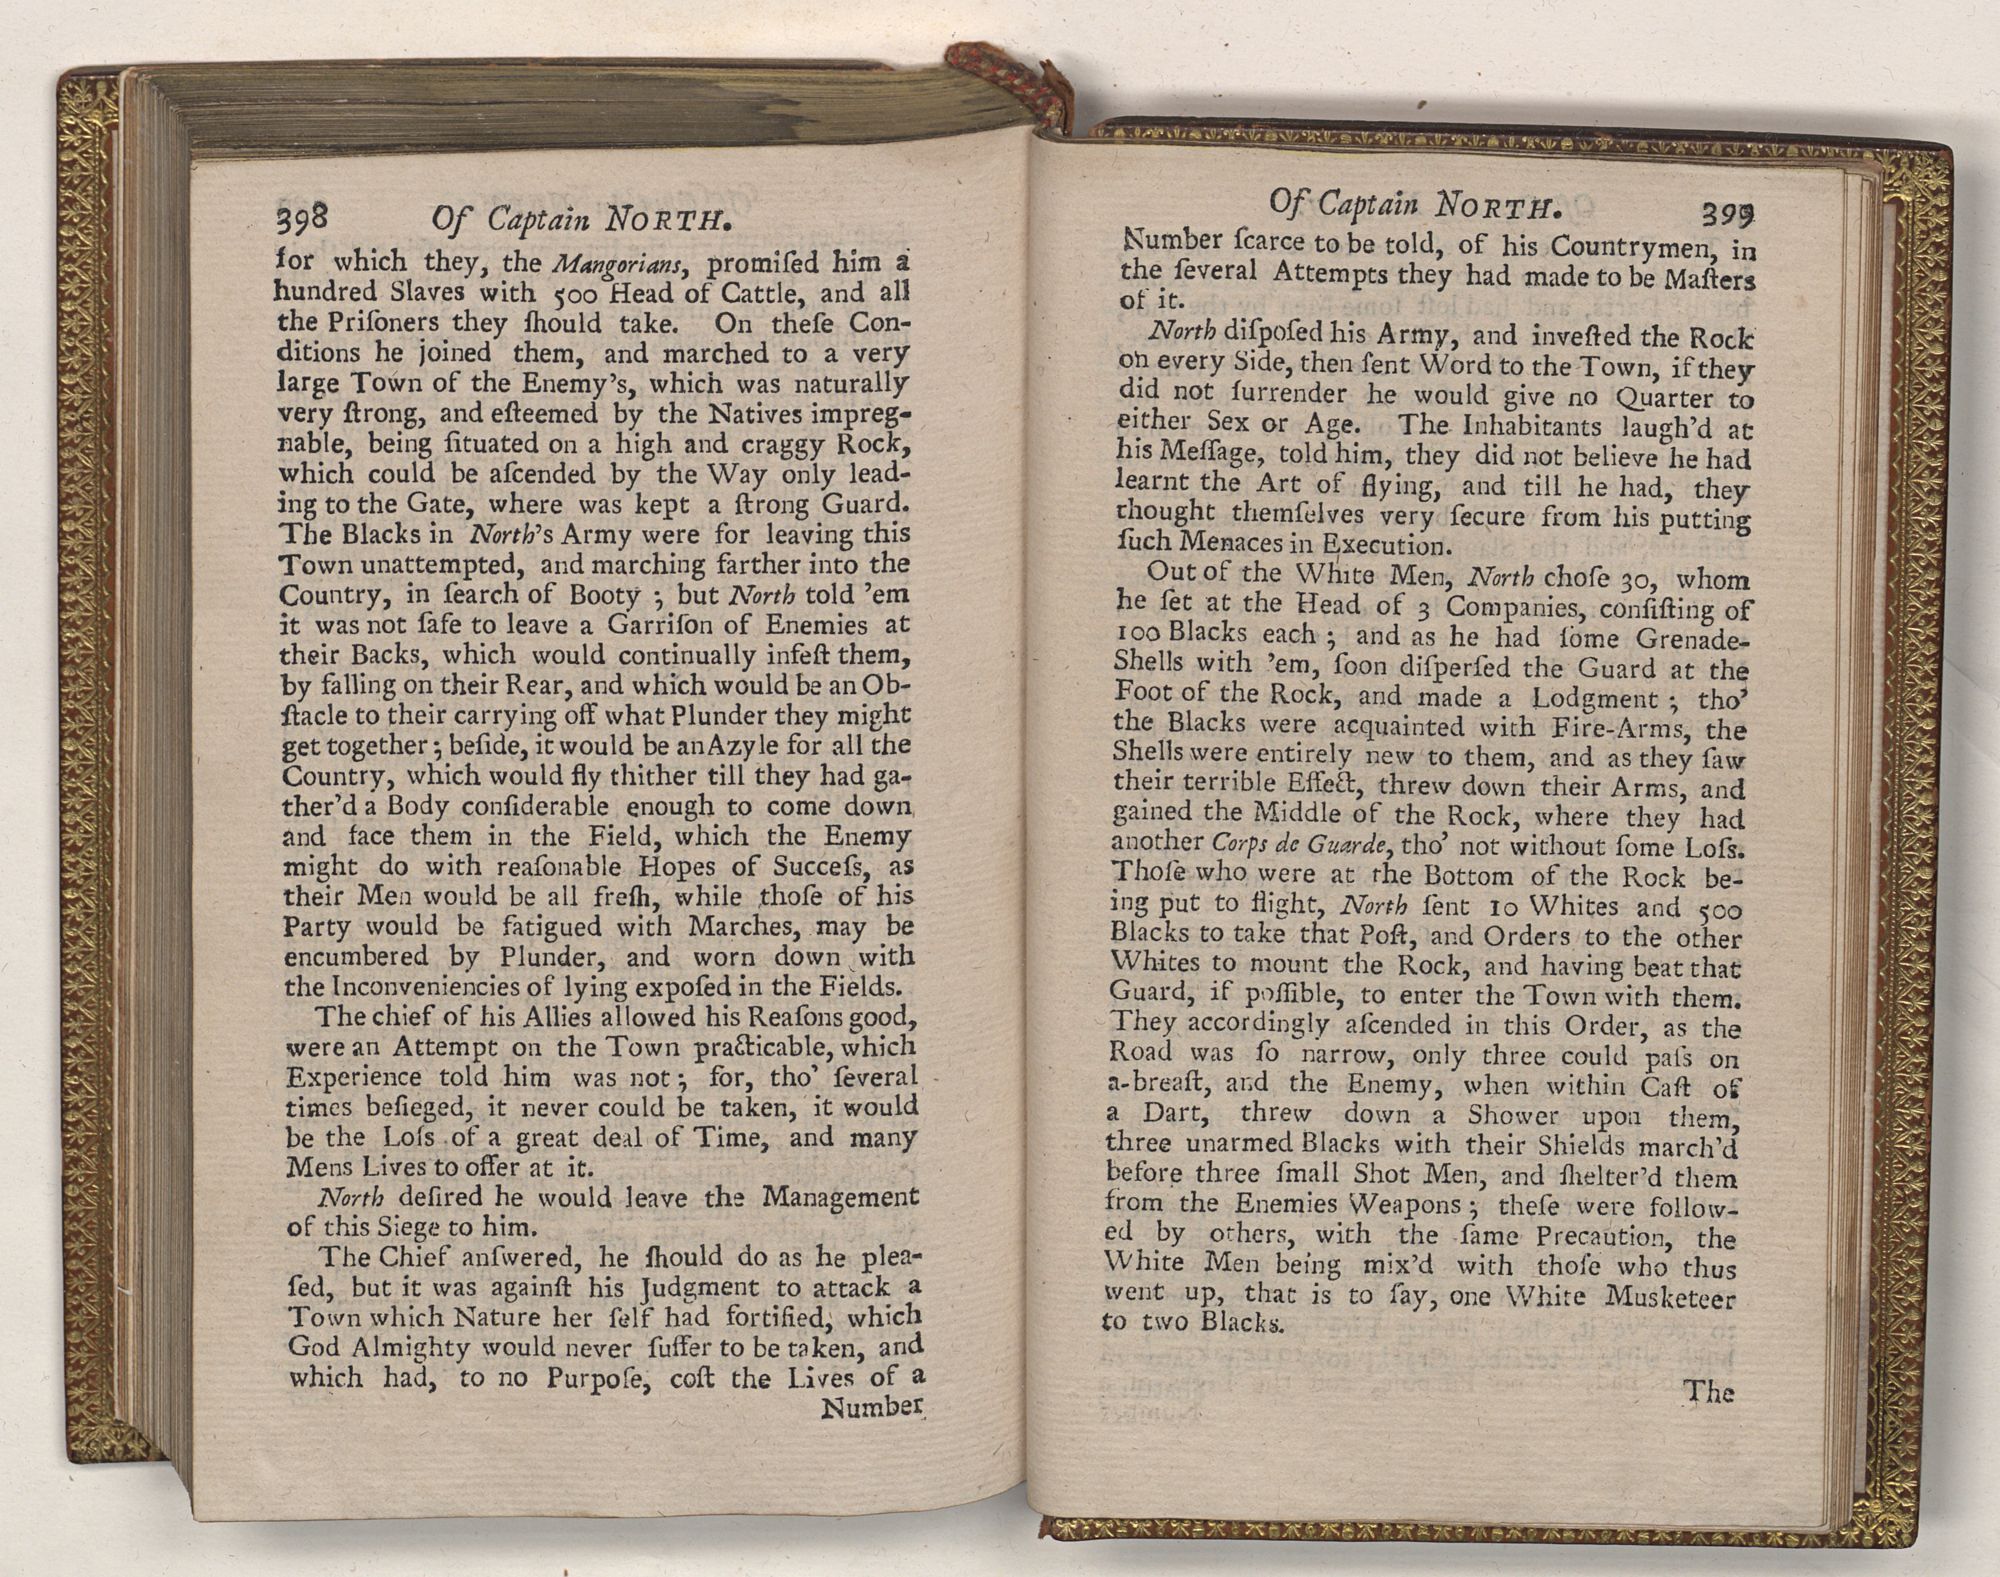 398 Of Captain NORTH.
for which they, the Mangorians, promiſed him a
hundred Slaves with 500 Head of Cattle, and all
the Priſoners they ſhould take. On theſe Con-
ditions he joined them, and marched to a very
large Town of the Enemy's, which was naturally
very ſtrong, and eſteemed by the Natives impreg-
nable, being ſituated on a high and craggy Rock,
which could be aſcended by the Way only lead-
ing to the Gate, where was kept a ſtrong Guard.
The Blacks in North's Army were for leaving this
Town unattempted, and marching farther into the
Country, in ſearch of Booty ; but North told 'em
it was not ſafe to leave a Garriſon of Enemies at
their Backs, which would continually infeſt them,
by falling on their Rear, and which would be an Ob-
ſtacle to their carrying off what Plunder they might
get together ; beſide, it would be an Azyle for all the
Country, which would fly thither till they had ga-
ther'd a Body conſiderable enough to come down
and face them in the Field, which the Enemy
might do with reaſonable Hopes of Succeſs, as
their Men would be all freſh, while thoſe of his
Party would be fatigued with Marches, may be
encumbered by Plunder, and worn down with
the Inconveniencies of lying expoſed in the Fields.
The chief of his Allies allowed his Reaſons good,
were an Attempt on the Town practicable, which
Experience told him was not ; for, tho' ſeveral
times beſieged, it never could be taken, it would
be the Loſs of a great deal of Time, and many
Mens Lives to offer at it.
North deſired he would leave the Management
of this Siege to him.
The Chief anſwered, he ſhould do as he plea-
ſed, but it was againſt his Judgment to attack a
Town which Nature her ſelf had fortified, which
God Almighty would never ſuffer to be taken, and
which had, to no Purpoſe, coſt the Lives of a
Number
Of Captain NORTH. 399
Number ſcarce to be told, of his Countrymen, in
the ſeveral Attempts they had made to be Maſters
of it.
North diſpoſed his Army, and inveſted the Rock
on every Side, then ſent Word to the Town, if they
did not ſurrender he would give no Quarter to
either Sex or Age. The Inhabitants laugh'd at
his Meſſage, told him, they did not believe he had
learnt the Art of flying, and till he had, they
thought themſelves very ſecure from his putting
ſuch Menaces in Execution.
Out of the White Men, North choſe 30, whom
he ſet at the Head of 3 Companies, conſiſting of
100 Blacks each ; and as he had ſome Grenade-
Shells with 'em, ſoon diſperſed the Guard at the
Foot of the Rock, and made a Lodgment ; tho'
the Blacks were acquainted with Fire-Arms, the
Shells were entirely new to them, and as they ſaw
their terrible Effect, threw down their Arms, and
gained the Middle of the Rock, where they had
another Corps de Guarde, tho' not without ſome Loſs.
Thoſe who were at the Bottom of the Rock be-
ing put to flight, North ſent 10 Whites and 500
Blacks to take that Poſt, and Orders to the other
Whites to mount the Rock, and having beat that
Guard, if poſſible, to enter the Town with them.
They accordingly aſcended in this Order, as the
Road was ſo narrow, only three could paſs on
a-breaſt, and the Enemy, when within Caſt of
a Dart, threw down a Shower upon them,
three unarmed Blacks with their Shields march'd
before three ſmall Shot Men, and ſhelter'd them
from the Enemies Weapons ; theſe were follow-
ed by others, with the ſame Precaution, the
White Men being mix'd with thoſe who thus
went up, that is to ſay, one White Musketeer
to two Blacks.
The